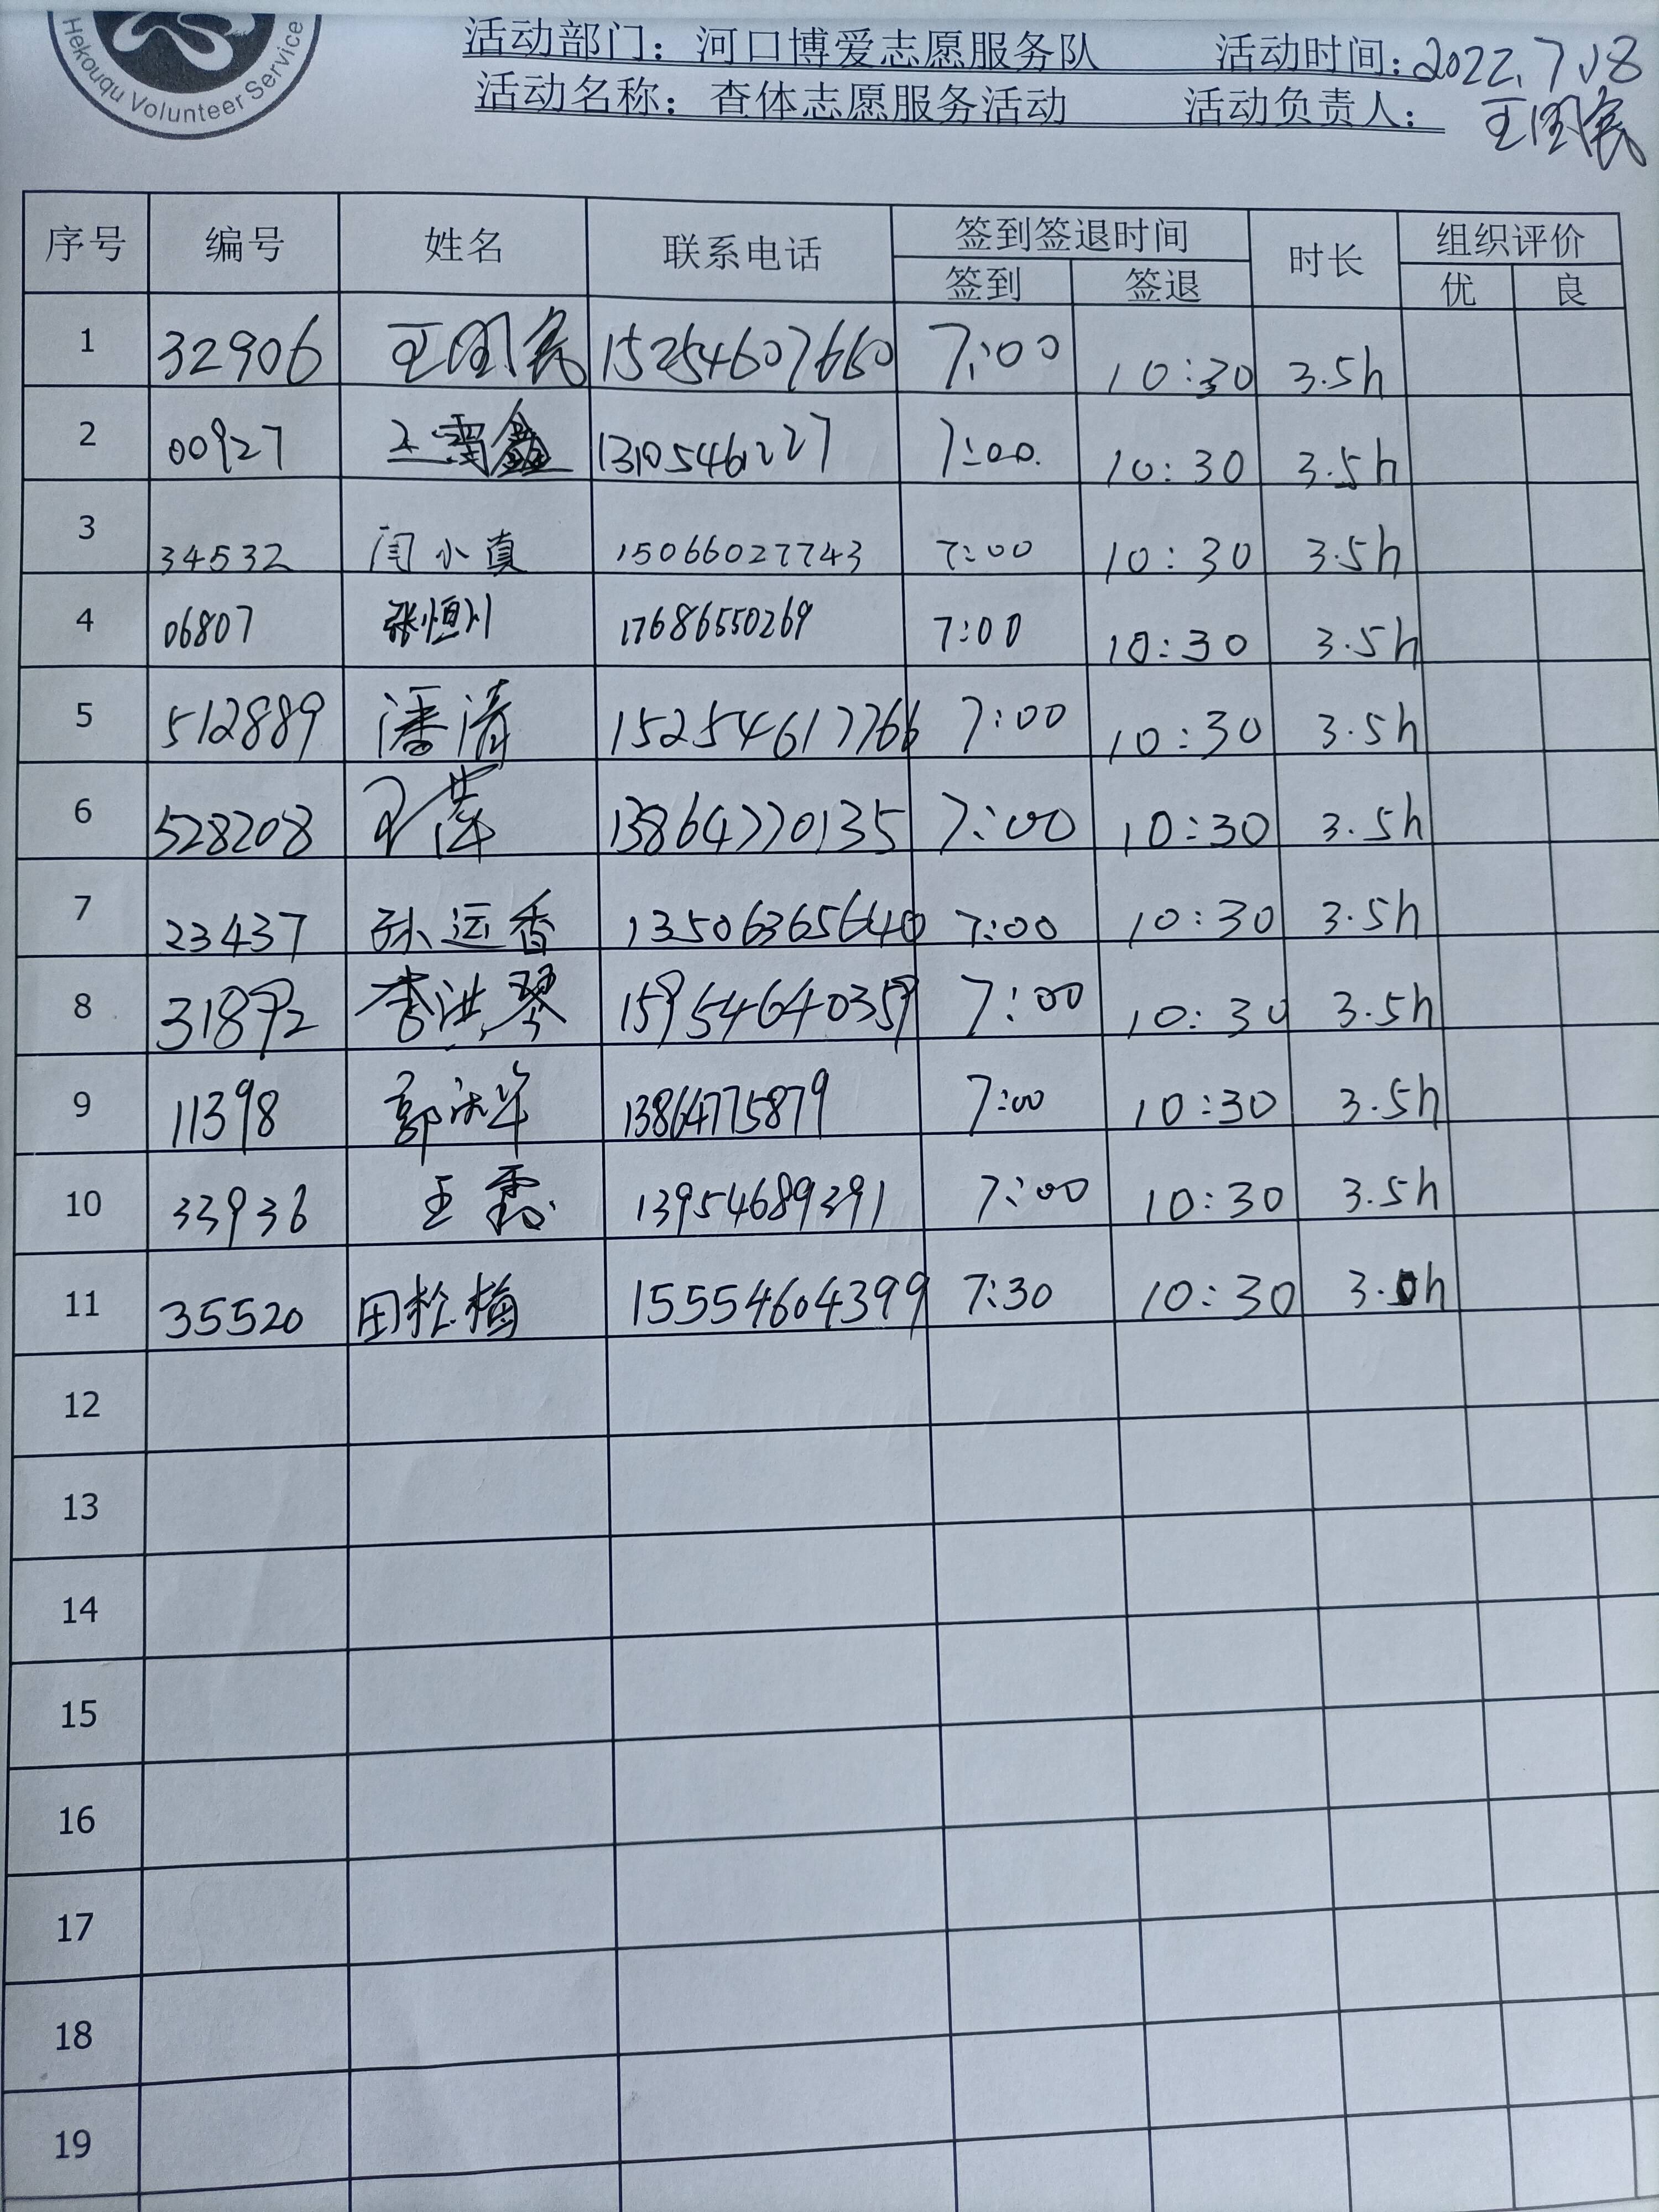 Hekouqu Volunteer Service
活动部门：河口博爱志愿服务队 活动时间：2022.7.18
活动名称：查体志愿服务活动 活动负责人：王图民
序号 编号 姓名 联系电话 签到签退时间 时长 组织评价
签到 签退 优 良
1 32906 王图民 15254607660 7:00 10:30 3.5h
2 00927 王雪鑫 13105461227 7:00 10:30 3.5h
3 34532 闫小真 15066027743 7:00 10:30 3.5h
4 06807 张恒川 17686550269 7:00 10:30 3.5h
5 512889 潘清 15254617766 7:00 10:30 3.5h
6 528208 王萍 13864770135 7:00 10:30 3.5h
7 23437 孙运香 13506365640 7:00 10:30 3.5h
8 31892 李洪琴 15954640359 7:00 10:30 3.5h
9 11398 郭 13864775879 7:00 10:30 3.5h
10 33936 王霞 13954689391 7:00 10:30 3.5h
11 35520 田松梅 15554604399 7:30 10:30 3.0h
12
13
14
15
16
17
18
19